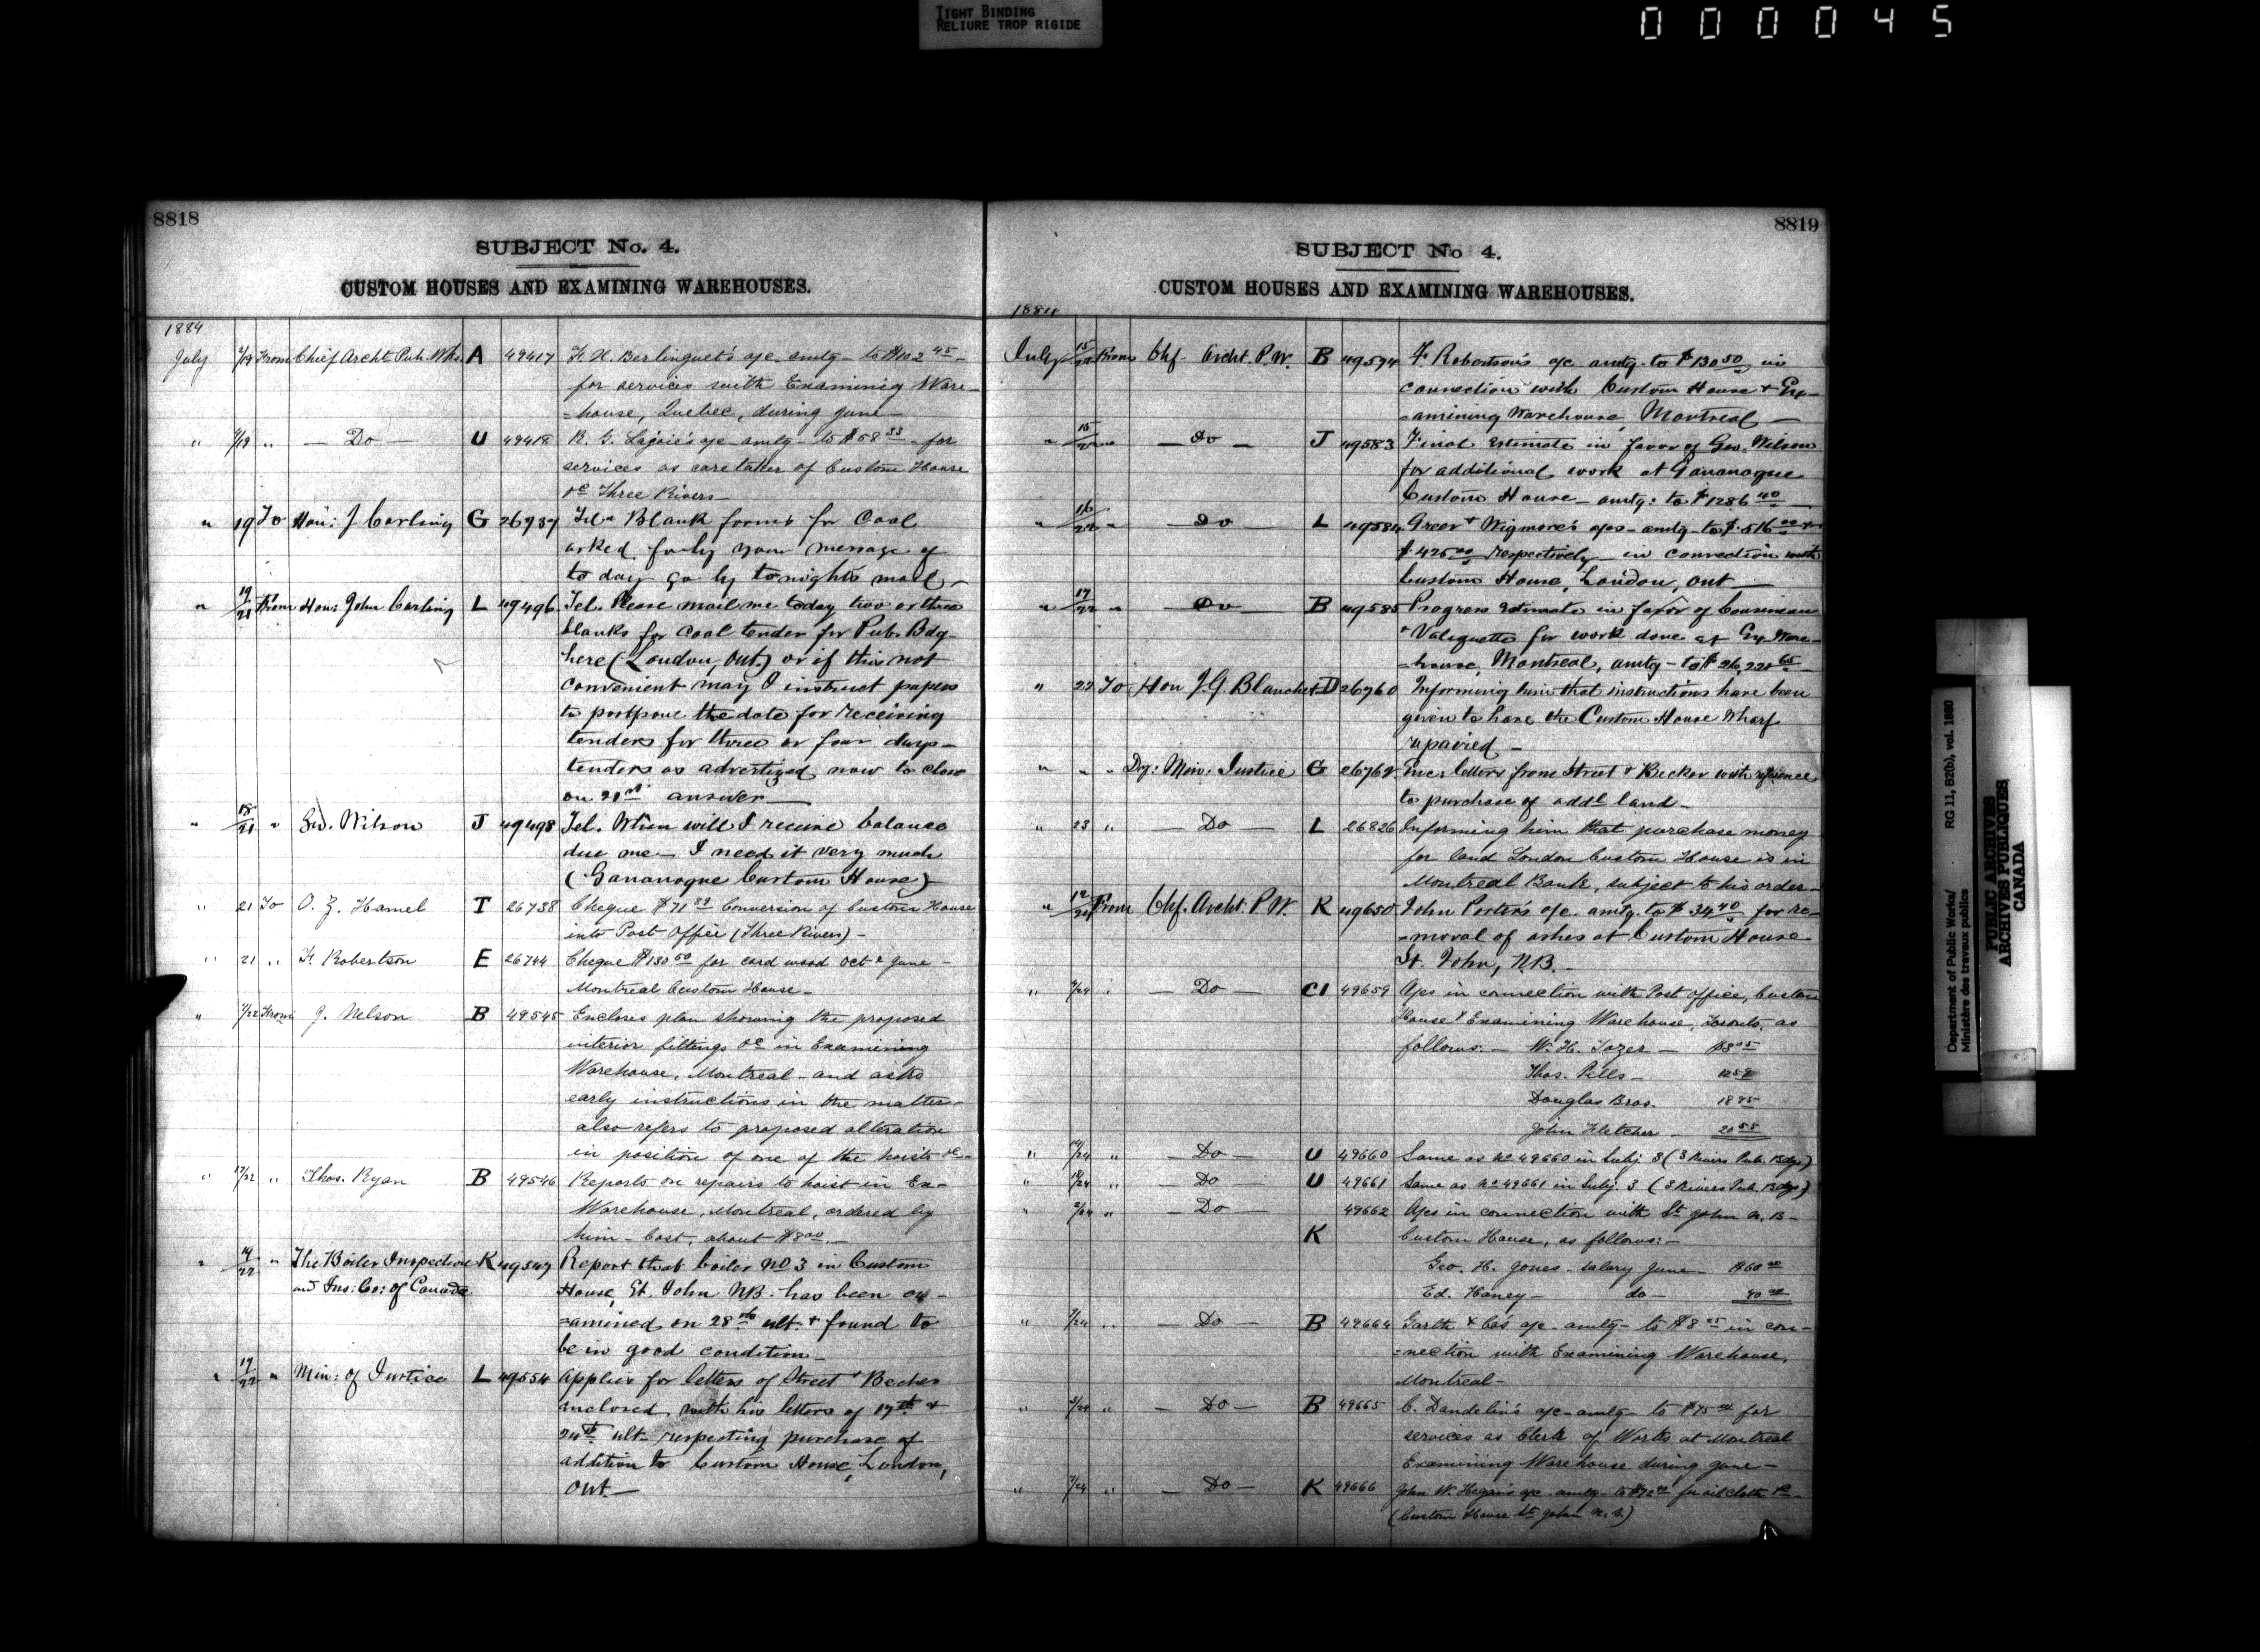 TIGHT BINDING
RELIURE TROP RIGIDE
000045
8818
SUBJECT No. 4.
CUSTOM HOUSES AND EXAMINING WAREHOUSES.
1884
July 2/19 From Chief Archt. Pub. Wks. A 49417 F. X. Berlinguet's a/c amtg- to $102 45 -
for services with Examining Ware-
=house, Quebec, during June-
" /19 " - Do - U 49418 R. G. Lajoie's a/c amtg- to $58 33 - for
services as caretaker of Custom House
&c Three Rivers-
" 19 To Hon: J Carling G 26737 Tel. Blank forms for Coal
asked for by your message of
to day go by to night's mail-
" 19/21 From Hon: John Carling L 49496 Tel. Please mail me today two or three
blanks for coal tender for Pub. Bdg-
here (London, Ont.) or if this not
convenient may I instruct papers
to postpone the date for receiving
tenders for three or four days-
tenders as advertized now to close
on 21st answer-
" 18/21 " Geo. Wilson J 49498 Tel. When will I receive balance
due me- I need it very much
(Gananoque Custom House)
" 21 To O. Z. Hamel T 26738 Cheque $71 Conversion of Custom House
into Post Office (Three Rivers)-
" 21 " F. Robertson E 26744 Cheque $130 50 for cord wood Oct & June -
Montreal Custom House-
" /22 From J. Nelson B 49545 Encloses plan showing the proposed
interior fittings &c in Examining
Warehouse, Montreal - and asks
early instructions in the matter-
also refers to proposed alteration
in position of one of the hoists &c-
" 17/22 " Thos. Ryan B 49546 Reports on repairs to hoist in Ex-
Warehouse, Montreal, ordered by
him - Cost, about $8 00.-
" 19/22 " The Boiler Inspection K 49547 Report that boiler No 3 in Custom
and Ins: Co: of Canada House, St. John NB. has been ex-
=amined on 28th ult. & found to
be in good condition-
" 19/22 " Min: of Justice L 49554 Applies for letters of Street & Becher
enclosed with his letters of 17th &
24th ult- respecting purchase of
addition to Custom House, London,
Ont.-
8819
SUBJECT No 4.
CUSTOM HOUSES AND EXAMINING WAREHOUSES.
1884
July 15/22 From Chf. Archt. P.W. B 49574 F. Robertson's a/c amtg- to $130 50 in
connection with Custom House & Ex-
=amining Warehouse, Montreal-
" 15/22 " - Do - J 49583 Final Estimate in favor of Geo. Wilson
for additional work at Gananoque
Custom House - amtg: to $1286 40
" 16/22 " Do L 49584 Greer & Wigmore's a/cs - amtg- to $516 00 &
$425 00 respectively in connection with
Custom House, London, Ont-
" 17/22 " Do B 49585 Progress Estimate in favor of Cousineau
& Valiquette for work done at Ex. Ware-
=house, Montreal, amtg- to $26,220 65
" 22 To Hon J G Blanchet D 26760 Informing him that instructions have been
given to have the Custom House Wharf
repaired-
" " " Dep: Min: Justice G 26762 Enc. letters from Street & Becher with reference
to purchase of addl land-
" 23 " - Do - L 26826 Informing him that purchase money
for land London Custom House is in
Montreal Bank, subject to his order-
" 12/24 From Chf. Archt. P.W. K 49650 John Porter's a/c amtg. to $34 40 for re-
=moval of ashes at Custom House
St. John, N.B.-
" /24 " - Do - CI 49659 A/cs in connection with Post Office, Custom
House & Examining Warehouse, Toronto, as
follows:- W. H. Tozer - $8 05
Thos. Pells-
Douglas Bros. 18 75
John Fletcher - 20 55
" /24 " - Do - U 49660 Same as No 49660 in Subj. 3 (3 Rivers Pub. Bdgs)
" 18/24 " - Do - U 49661 Same as No 49661 in Subj. 3 (3 Rivers Pub. Bdgs)
" /24 " - Do - 49662 A/cs in connection with St John N.B-
K Custom House, as follows:-
Geo. H. Jones - salary June - $60 00
Ed. Haney - do - 40 00
" /24 " - Do - B 49664 Garth & Co's a/c amtg- to $8 25 in con-
=nection with Examining Warehouse,
Montreal-
" /24 " - Do - B 49665 C. Dandelin's a/c- amtg- to $75 00 for
services as Clerk of Works at Montreal
Examining Warehouse during June-
" /24 " - Do - K 49666 John W. Hegan's a/c amtg- to $72 for oilcloth &c-
(Custom House St John N.B.)
Department of Public Works/ RG 11, B2(b), vol. 1880
Ministère des travaux publics
PUBLIC ARCHIVES
ARCHIVES PUBLIQUES
CANADA